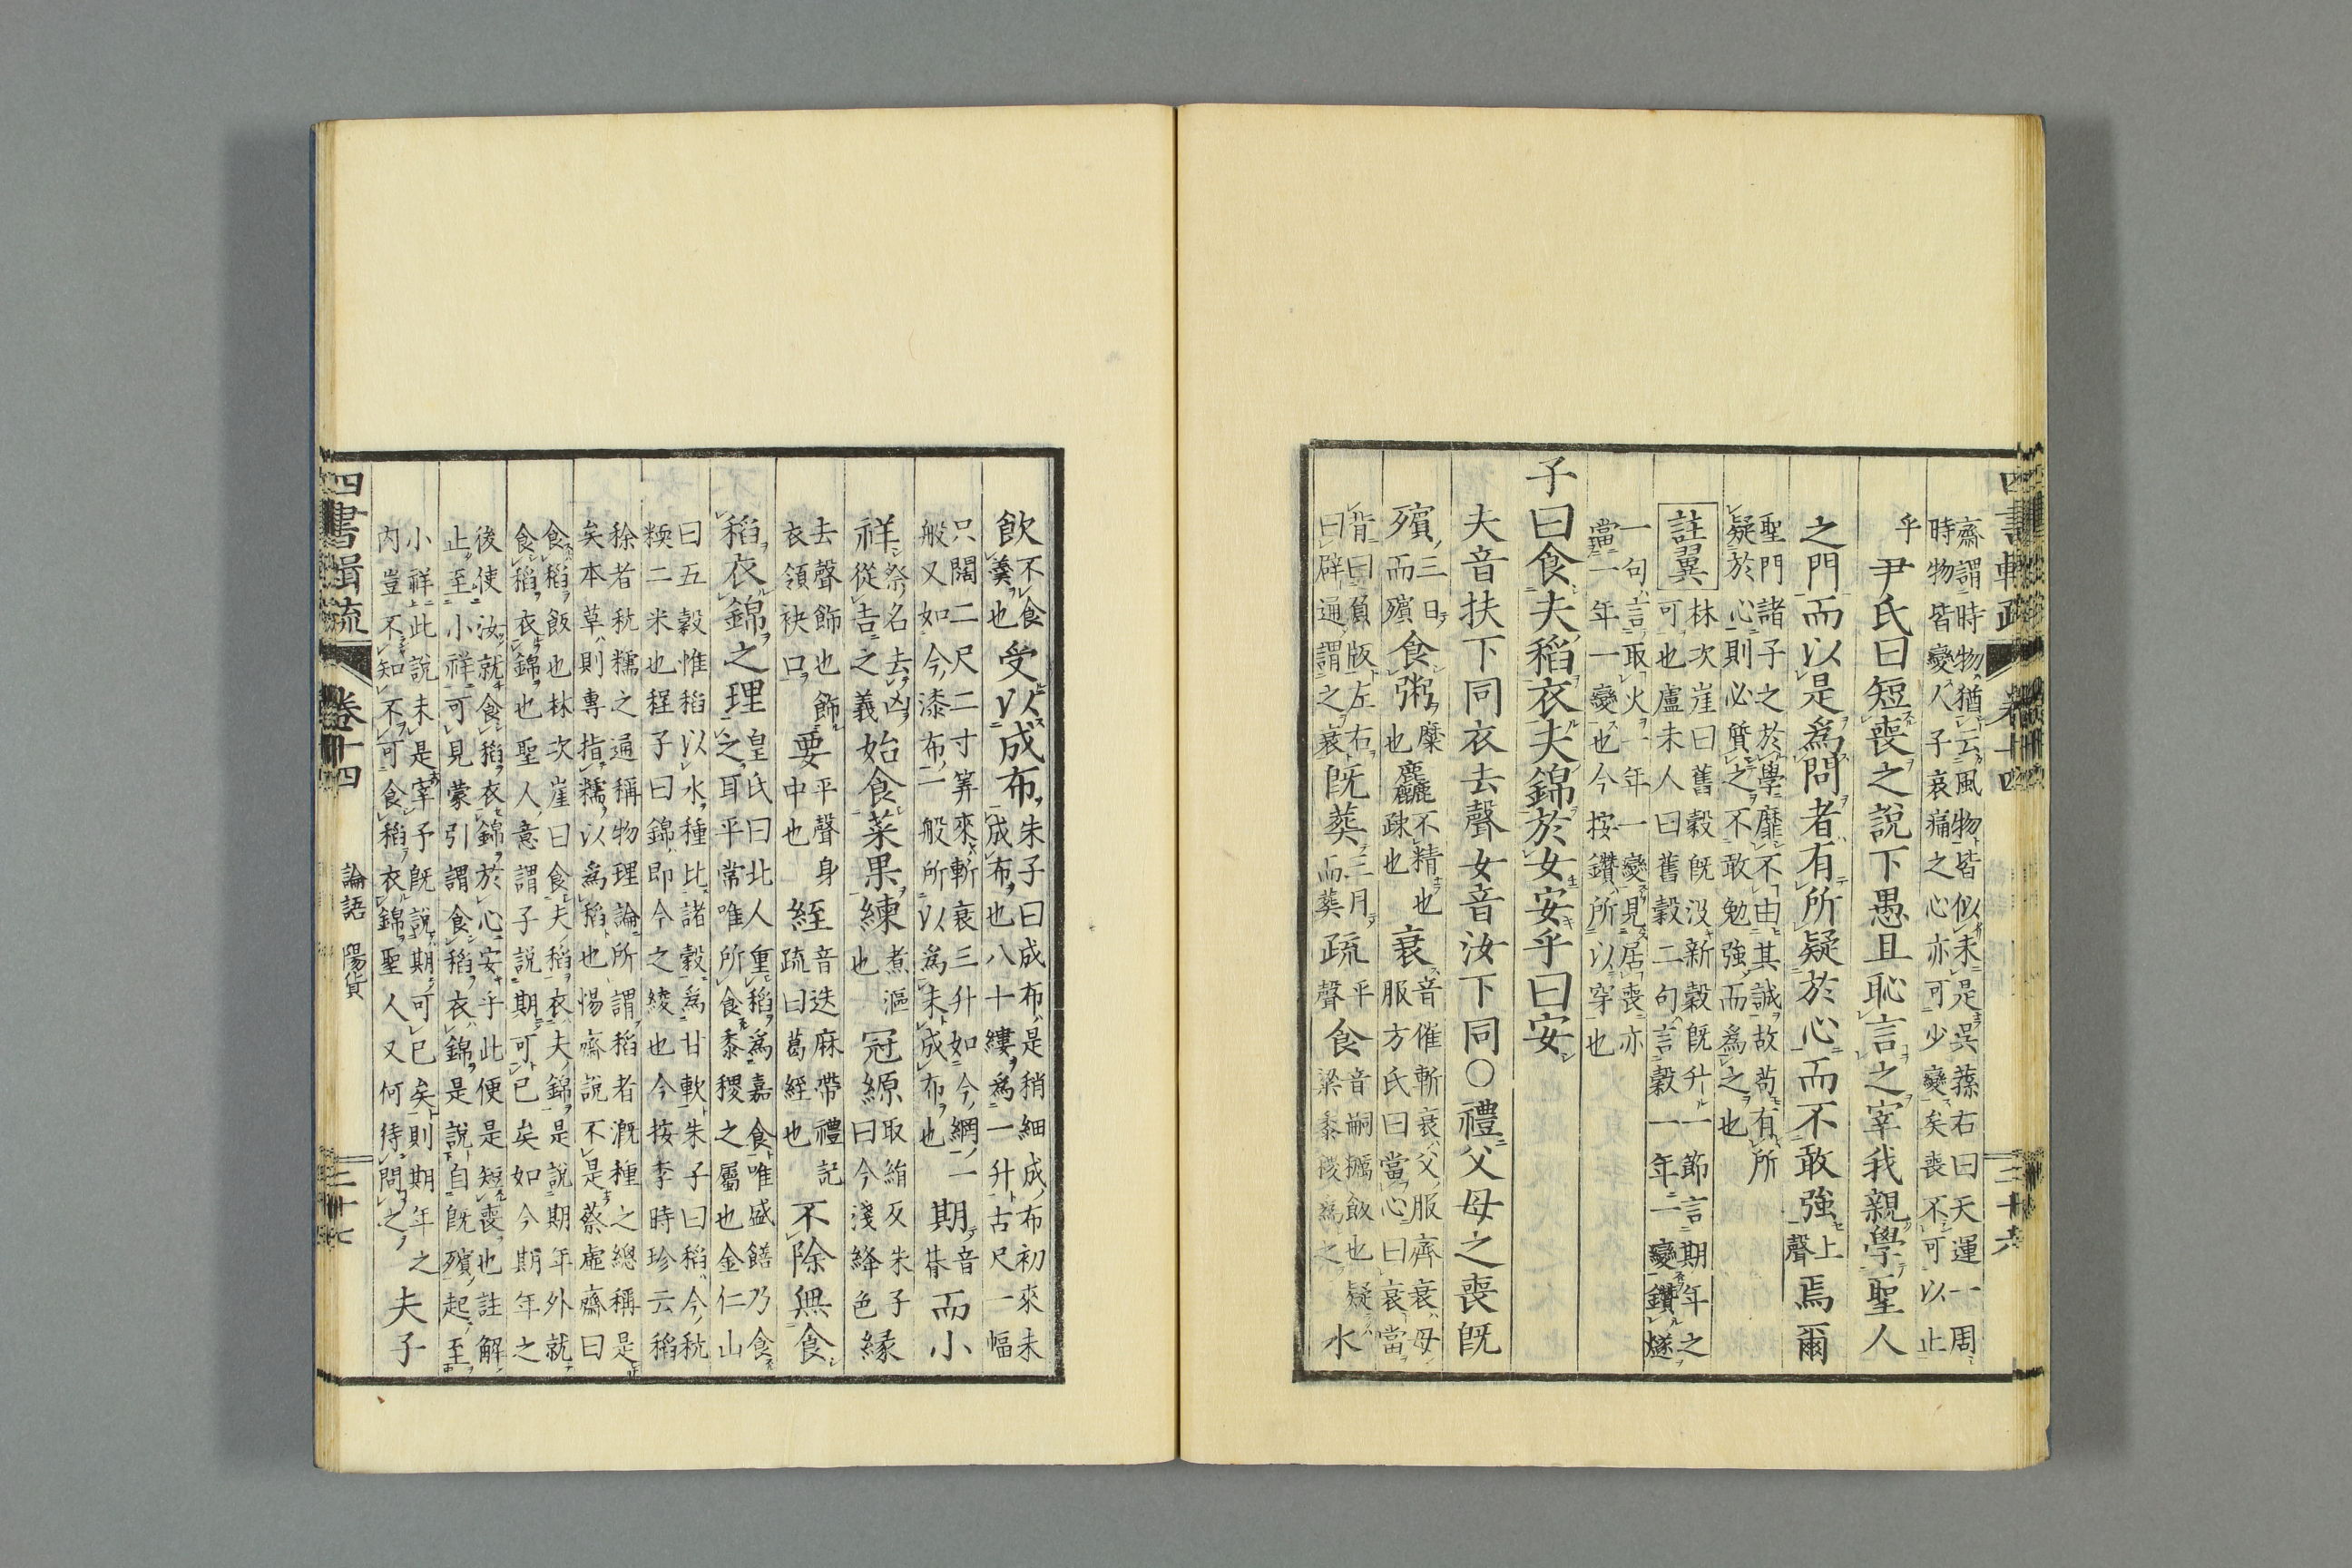 四書輯疏 卷十四 三十六
齋謂時物猶云風物皆似未是呉蓀右曰天運一周
時物皆變人子哀痛之心亦可少變矣喪不可以止
乎尹氏曰短喪之說下愚且恥言之宰我親學聖人
之門而以是爲問者有所疑於心而不敢強上聲焉爾
聖門諸子之於學靡不由其誠故苟有所
疑於心則必質之不敢勉強而爲之也
註翼林次崖曰舊穀既沒新穀既升一節言期年之
可也盧未人曰舊穀二句言穀一年二變鑽燧
一句言取火一年一變見居喪亦
當一年一變也今按鑽所以穿也
子曰食夫稻衣夫錦於女安乎曰安
夫音扶下同衣去聲女音汝下同○禮父母之喪既
殯三日而殯食粥糜也麤不精也疎也衰音催斬衰父服齊衰母服方氏曰當心曰衰當
背曰負版左右曰辟適謂之衰既葬三月而葬疏平聲食音嗣糲飯也疑粱黍稷爲之水
飲不食羹也受以成布朱子曰成布是稍細成布初來未成布也八十縷爲一升古尺一幅
只闊二尺二寸筭來斬衰三升如今網一般又如今漆布一般所以爲未成布也期音朞而小
祥祭名去凶從吉之義始食菜果練煮漚也冠縓取絹反朱子曰今淺絳色緣
去聲飾也飾衣領袂口要平聲身中也絰音迭麻帶禮記疏曰葛絰也不除無食
稻衣錦之理皇氏曰北人重稻爲嘉食唯盛饍乃食之耳平常唯所食黍稷之屬也金仁山
曰五穀惟稻以水種比諸穀爲甘軟朱子曰稻今秔
稬二米也程子曰錦即今之綾也今按李時珍云稻
稌者秔糯之通稱物理論所謂稻者溉種之總稱是
矣本草則專指糯以爲稻也惕齋說不是蔡虛齋曰
食稻飯也林次崖曰食夫稻衣夫錦是說期年外就
食稻衣錦也聖人意謂子說期可已矣如今期年之
後使汝就食稻衣錦於心安乎此便是短喪也註解
止至小祥可見蒙引謂食稻衣錦是說自既殯起至
小祥此說未是宰予既說期可已矣則期年之
內豈不知不可食稻衣錦聖人又何待問之夫子
四書輯疏 卷十四 論語 陽貨 三十七